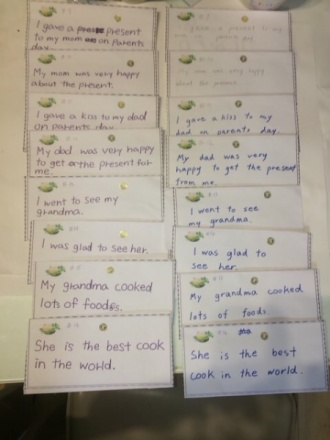 I gave a present
to my mom on parents
day.
My mom was very happy
about the present.
I gave a kiss to my dad
on parents day.
My dad was very happy
to get the present for
me.
I went to see my
grandma.
I was glad to see her.
My grandma cooked
lots of foods.
She is the best cook
in the world.
I gave a present to my
mom on parents day.
My mom was very happy
about the present.
I gave a kiss to my
dad on parents day.
My dad was very happy
to get the present
from me.
I went to see
my grandma.
I was glad to
see her.
My grandma cooked
lots of food.
She is the best
cook in the world.